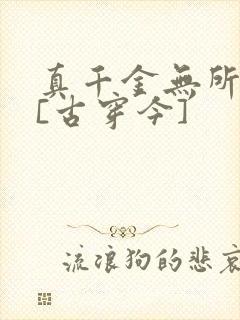 真千金無所
[古穿今]
流浪狗的悲哀